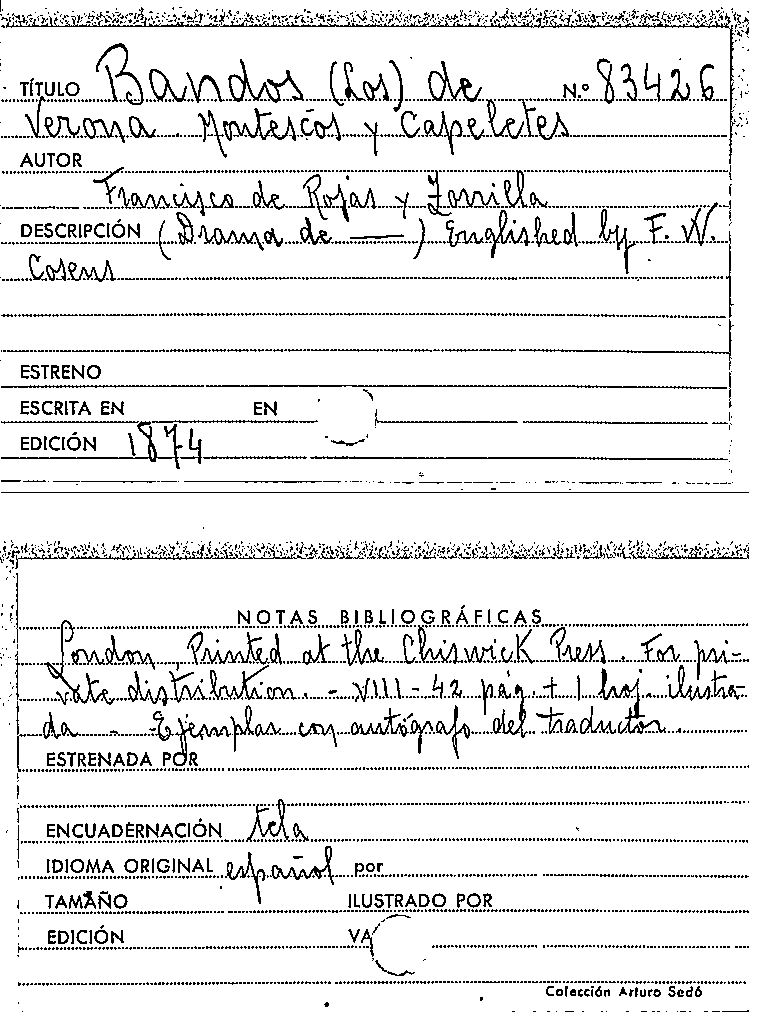 TÍTULO Bandos (Los) de N.º 83426
Verona. Montescos y Capeletes
AUTOR
Francisco de Rojas y Zorrilla
DESCRIPCIÓN (Drama de —) Englished by F. W.
Cosens
ESTRENO
ESCRITA EN EN
EDICIÓN 1874
NOTAS BIBLIOGRÁFICAS
London, Printed at the Chiswick Press. For pri-
vate distribution. - VIII - 42 pág. + 1 hoj. ilustra-
da - Ejemplar con autógrafo del traductor.
ESTRENADA POR
ENCUADERNACIÓN tela
IDIOMA ORIGINAL español por
TAMAÑO ILUSTRADO POR
EDICIÓN VA
Colección Arturo Sedó